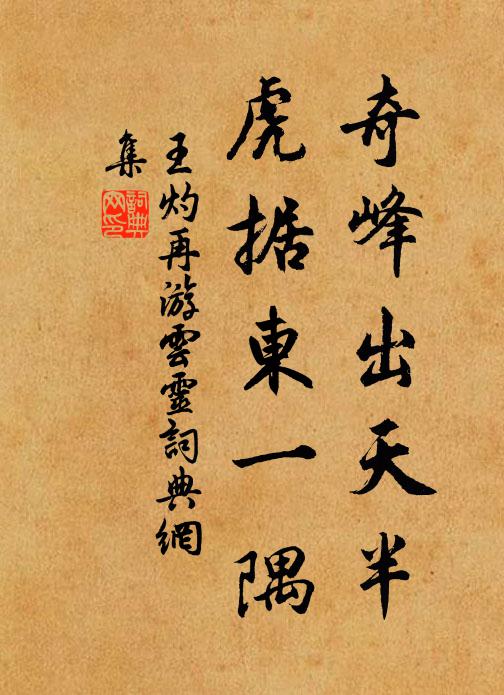 奇峰出天半
虎据東一隅
王灼再游雲靈詞典網
集
詞典网印